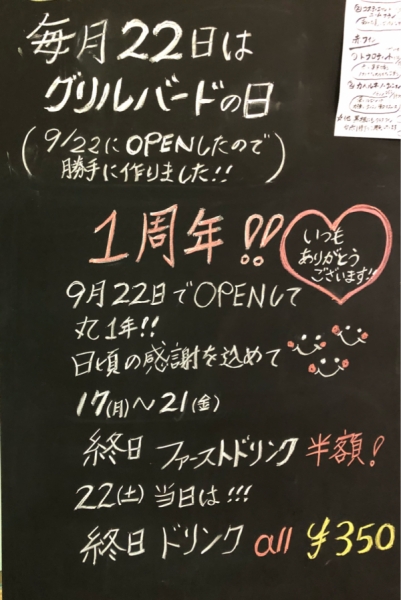 毎月22日は
グリルバードの日
(9/22にOPENしたので
勝手に作りました!!)
1周年!!
いつも
ありがとう
ございます!!
9月22日でOPENして
丸1年!!
日頃の感謝を込めて
17(月)～21(金)
終日 ファーストドリンク 半額!
22(土)当日は!!!
終日 ドリンク all ¥350